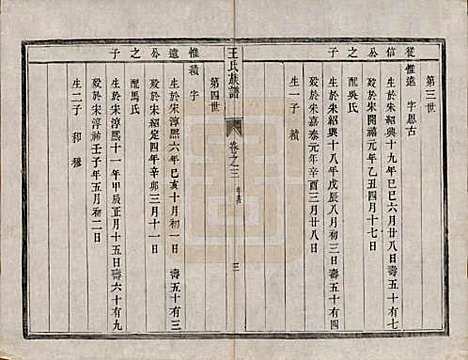 第三世
從信公之子
惟遠 字思古
生於宋紹興十九年己巳六月廿八日 壽五十有四
歿於宋開禧元年乙丑四月十七日
配吳氏
生於宋紹興十八年戊辰八月初三日 壽五十有四
歿於宋嘉泰元年辛酉三月廿八日
生一子 績
王氏族譜
卷之三
三
第四世
惟遠公之子
績 字
生於宋淳熙六年己亥十月初一日 壽五十有三
歿於宋紹定四年辛卯三月十一日
配馬氏
生於宋淳熙十一年甲辰正月十五日 壽六十有九
歿於宋淳祐壬子年五月初二日
生二子 和 穆